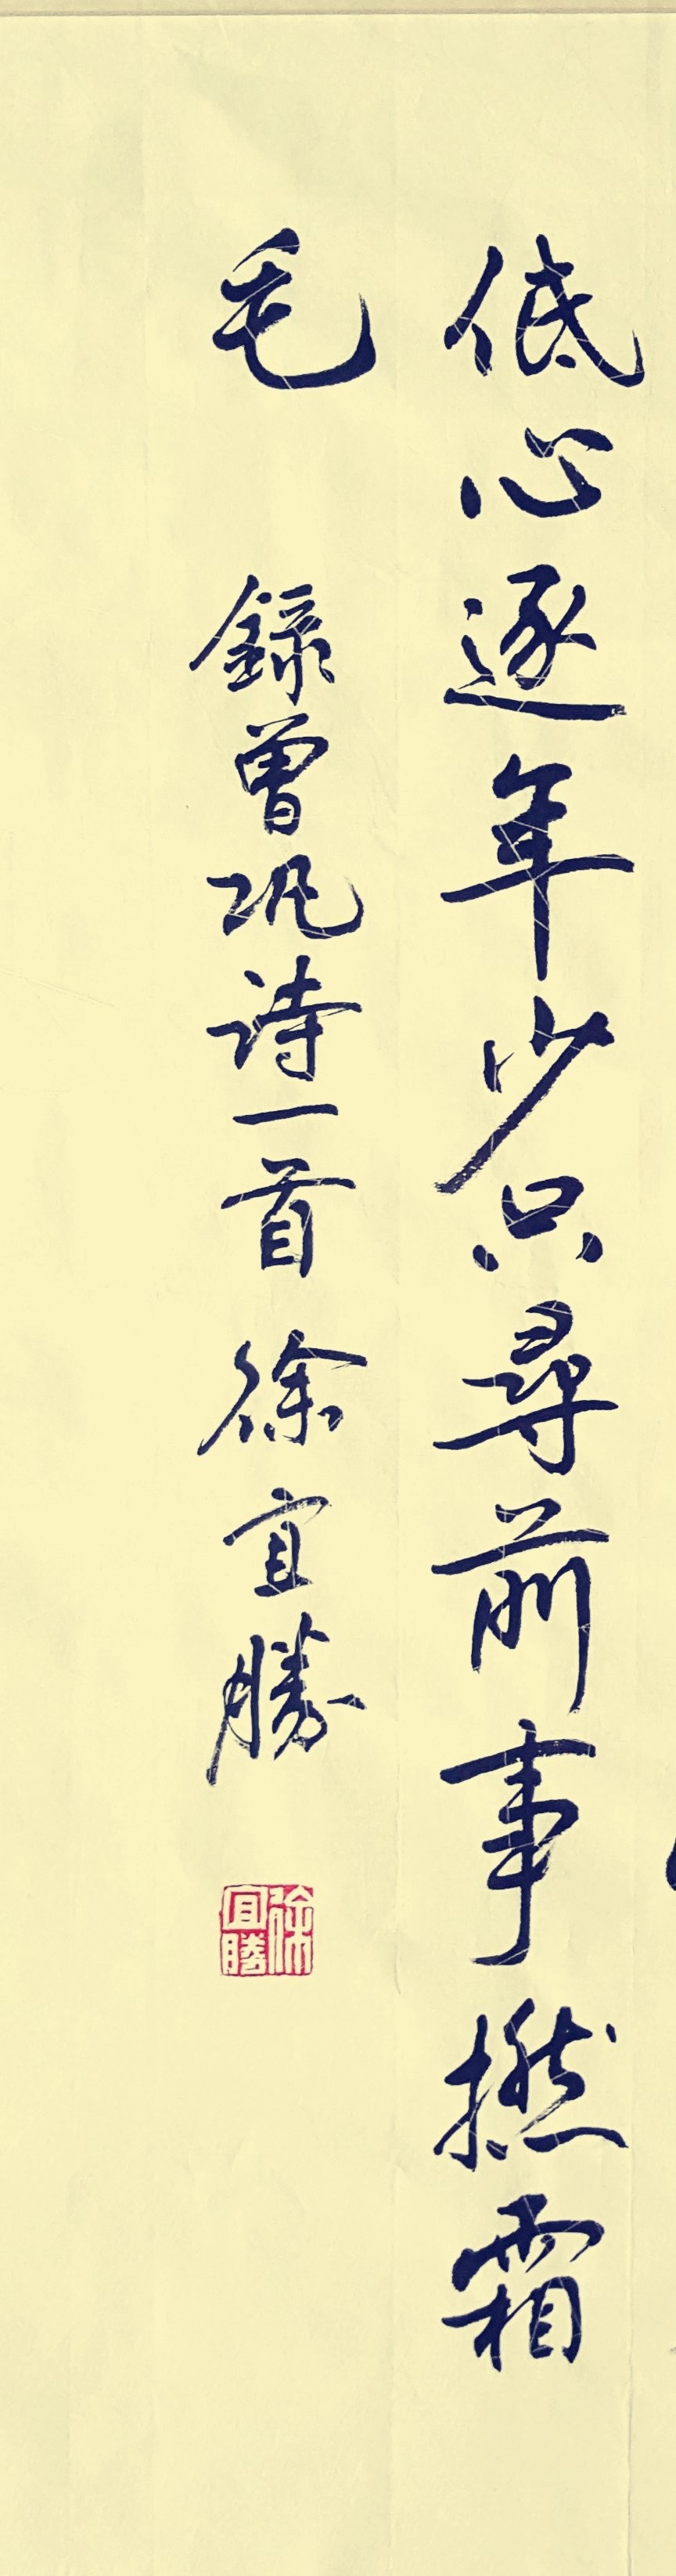 低心逐年少只尋前事撚霜
毛 錄曾巩詩一首 徐宜勝
徐宜勝